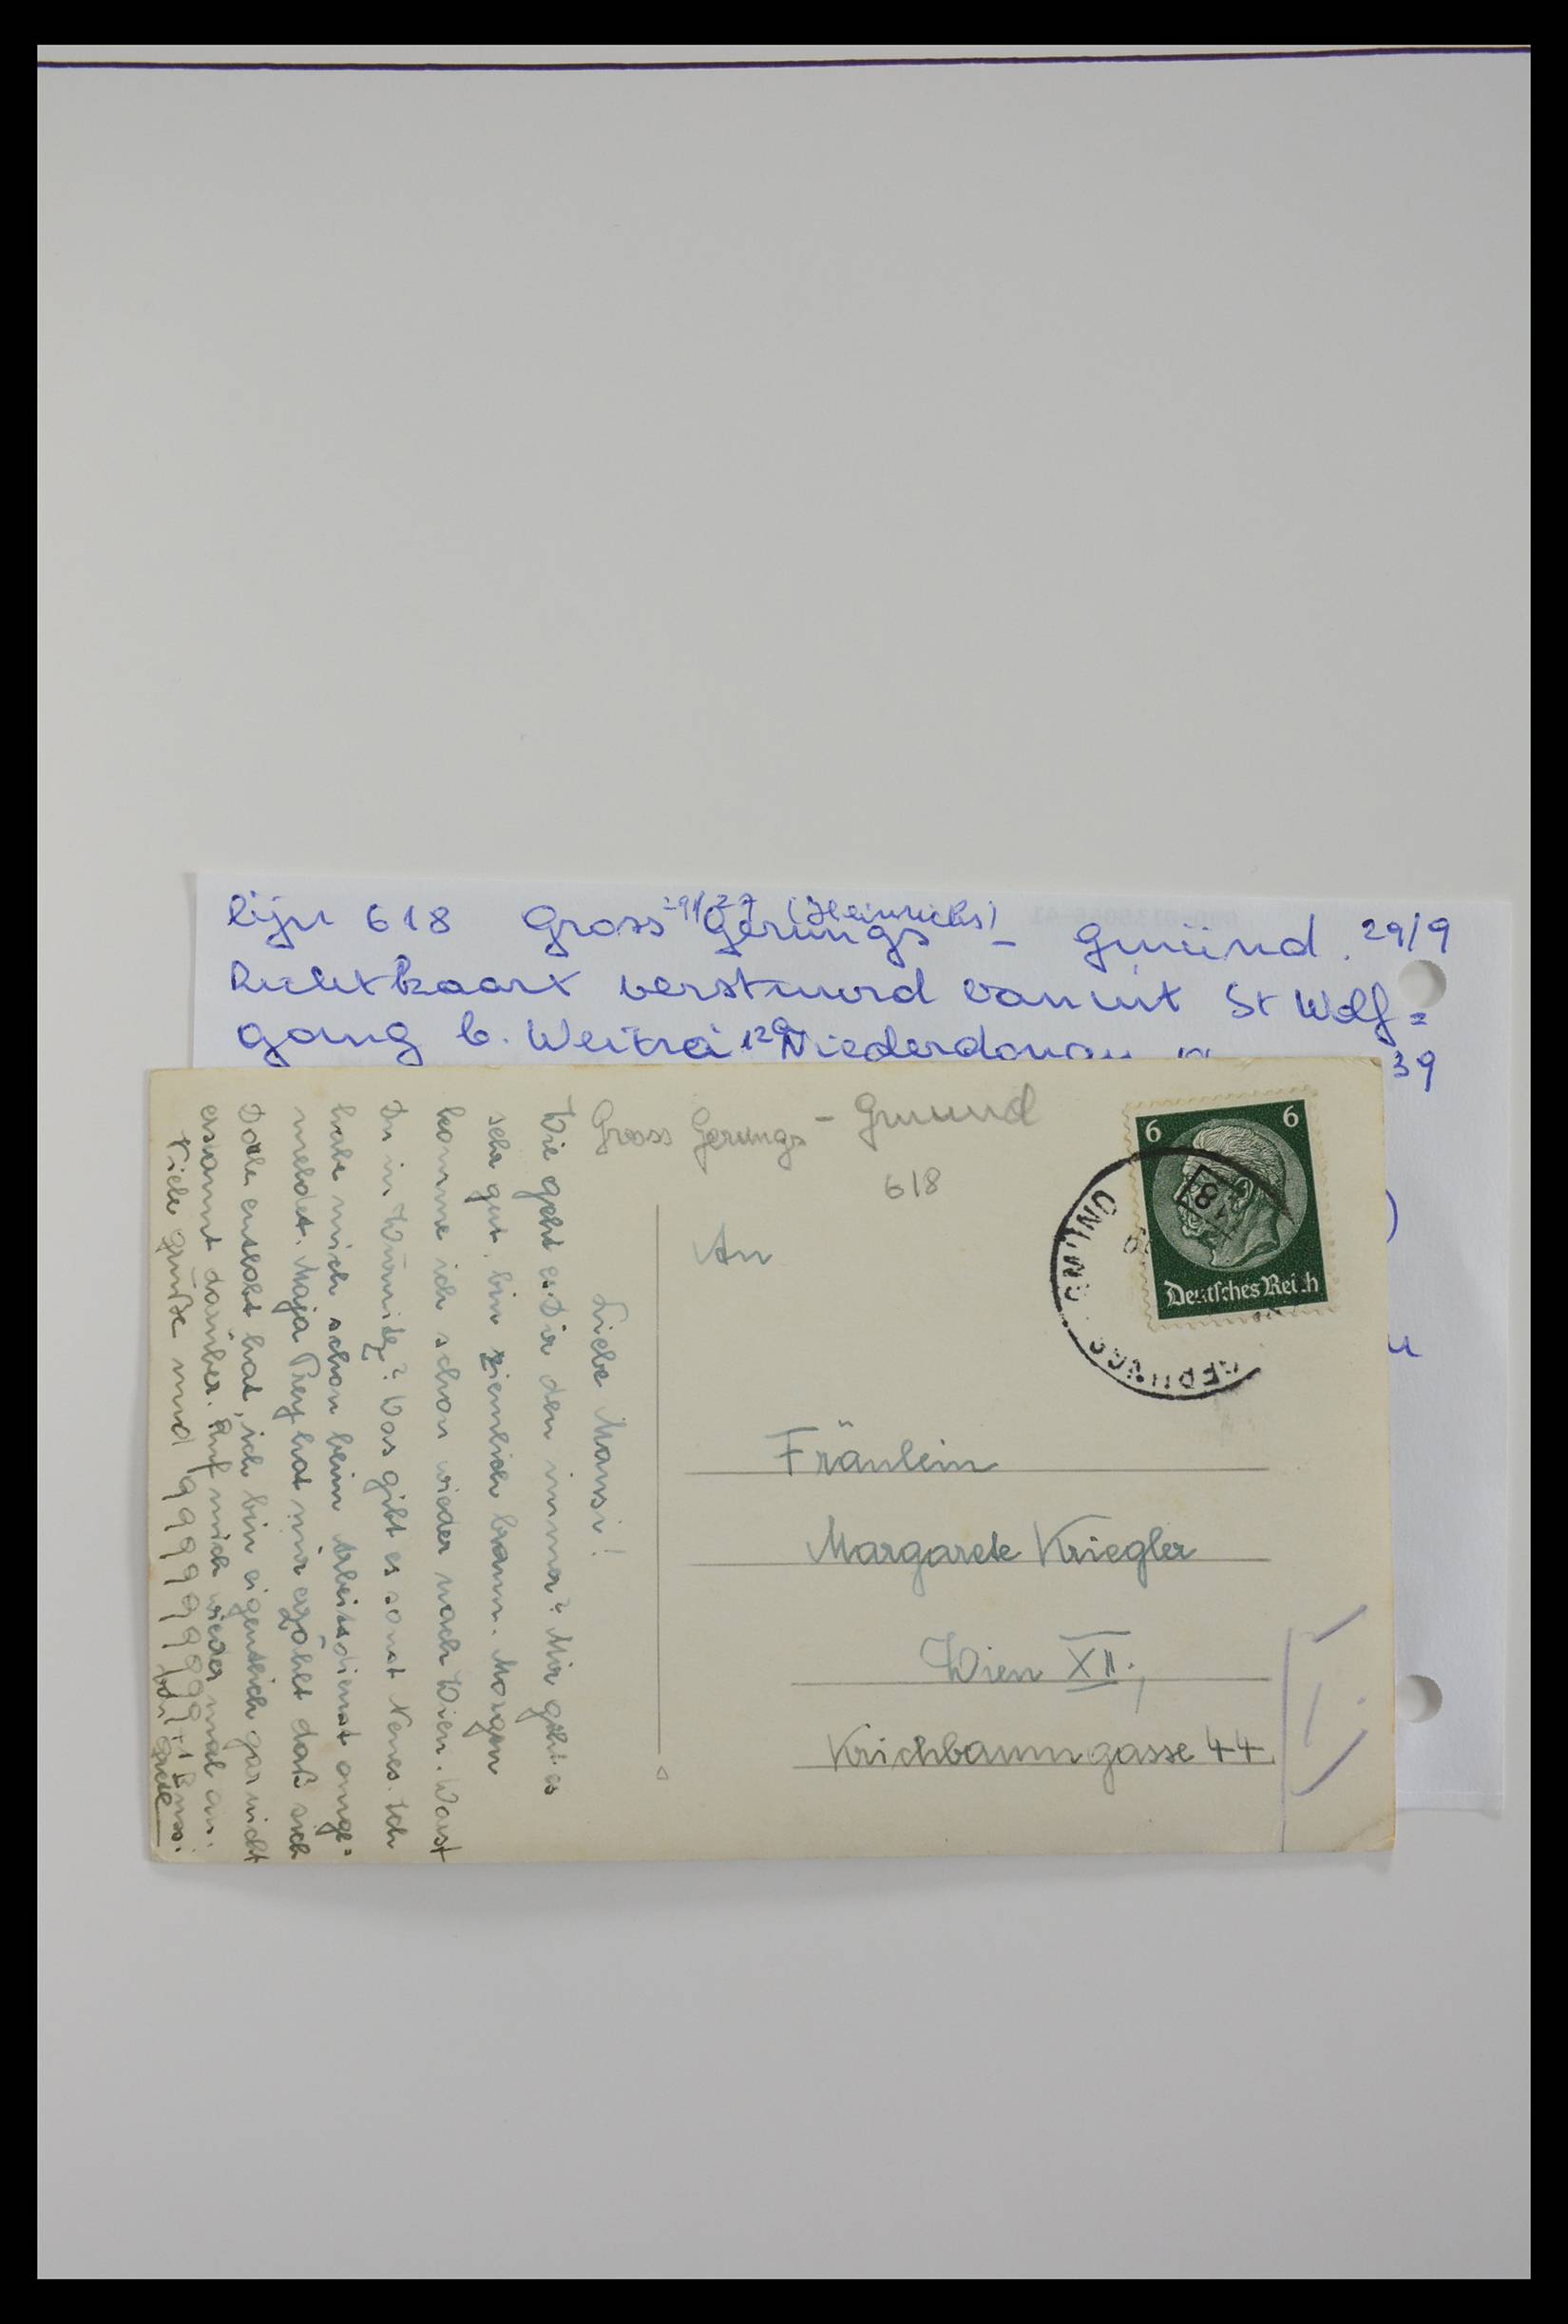 lijn 618 Gross Gerungs - Gmünd. 29/9
(Heinrichs)
Lichtkaart verstuurd vanuit St Wolf=
gang b. Weitra Niederdonau
39
Gross Gerungs - Gmünd
618
6 6
Deutsches Reich
GMÜND
GERUNGS
81
An
Fräulein
Margarete Kriegler
Wien XII.,
Krichbaumgasse 44
Liebe Mansi!
Wie geht es Dir den immer? Mir geht es
sehr gut, bin ziemlich braun. Morgen
komme ich schon wieder nach Wien. Warst
Du in ? Was gibt es sonst Neues. Ich
habe mich schon beim Arbeitsdienst ange=
meldet. Maja Prey hat mir erzählt daß sich
Dolle entlobt hat, ich bin eigentlich gar nicht
erstaunt darüber. Ruf mich wieder mal an.
Viele Grüße und 9999999999+1 Bussi
von Grete